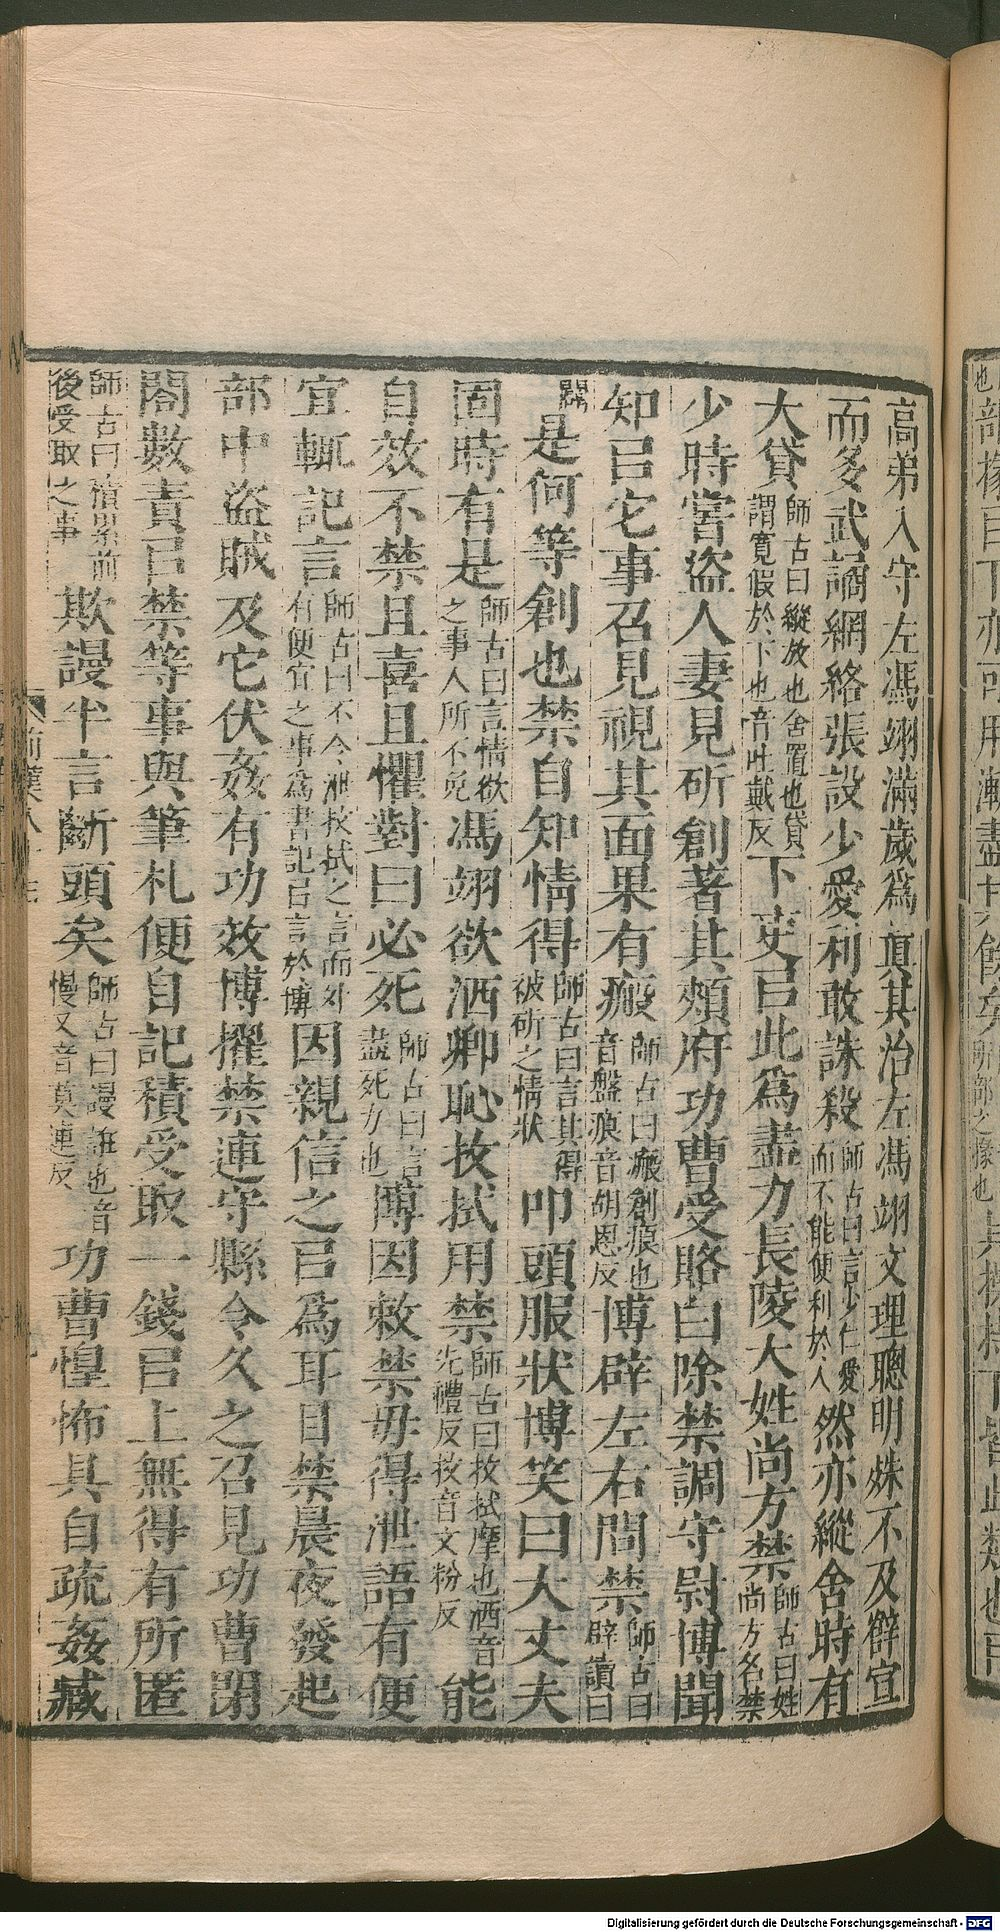 高弟入守左馮翊滿歲爲真其治左馮翊文理聰明殊不及薛宣
而多武譎網絡張設少愛利敢誅殺師古曰言少仁愛而不能便利於人然亦縱舍時有
大貸師古曰縱放也舍置也貸謂寬假於下也音吐戴反下吏㠯此爲盡力長陵大姓尚方禁師古曰姓尚方名禁
少時嘗盜人妻見斫創著其頰府功曹受賂白除禁調守尉博聞
知㠯它事召見視其面果有瘢師古曰瘢創痕也音盤痕音胡恩反博辟左右問禁師古曰辟讀曰
闢是何等創也禁自知情得師古曰言其得被斫之情狀叩頭服狀博笑曰大丈夫
固時有是師古曰言情欲之事人所不免馮翊欲洒卿恥抆拭用禁師古曰抆拭摩也洒音先禮反抆音文粉反能
自效不禁且喜且懼對曰必死師古曰言盡死力也博因敕禁毋得泄語有便
宜輒記言師古曰不令泄抆拭之言而外有便宜之事爲書記㠯言於博因親信之㠯爲耳目禁晨夜發起
部中盜賊及它伏姦有功效博擢禁連守縣令久之召見功曹閉
閤數責㠯禁等事與筆札使自記積受取一錢㠯上無得有所匿
師古曰積累前後受取之事欺謾半言斷頭矣師古曰謾誑也音慢又音莫連反功曹惶怖具自疏姦臧
前漢
Digitalisierung gefördert durch die Deutsche Forschungsgemeinschaft - DFG